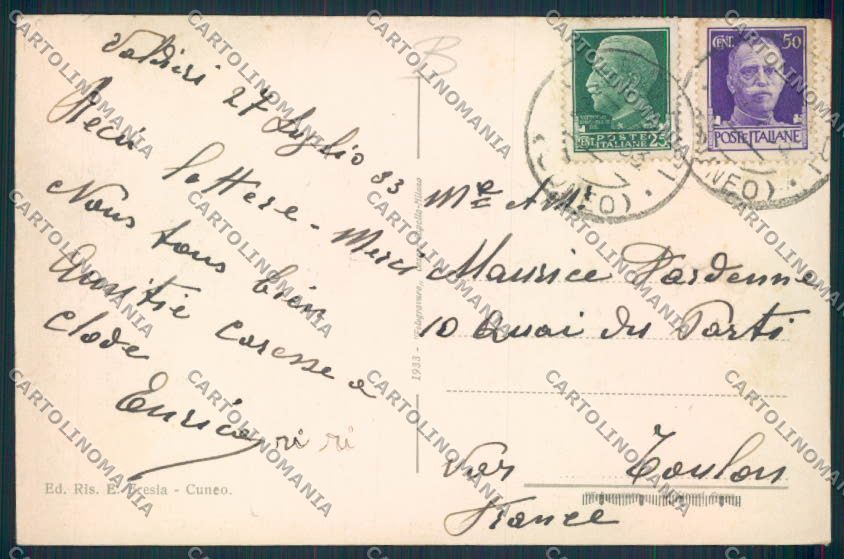 Valdieri 27 Luglio 33
Reçu lettere - Merci
Nous tous bien
Amitie caresse a
Clode
Enrico
riri
B
Ed. Ris. E. Fresia - Cuneo.
1933 - Fotogravure
Milano
CENT. 25
POSTE ITALIANE
CENT. 50
POSTE ITALIANE
(CUNEO)
(CUNEO)
Mr A M.
Maurice Dardenne
10 Quai du Parti
Var Toulon
France
CARTOLINOMANIA